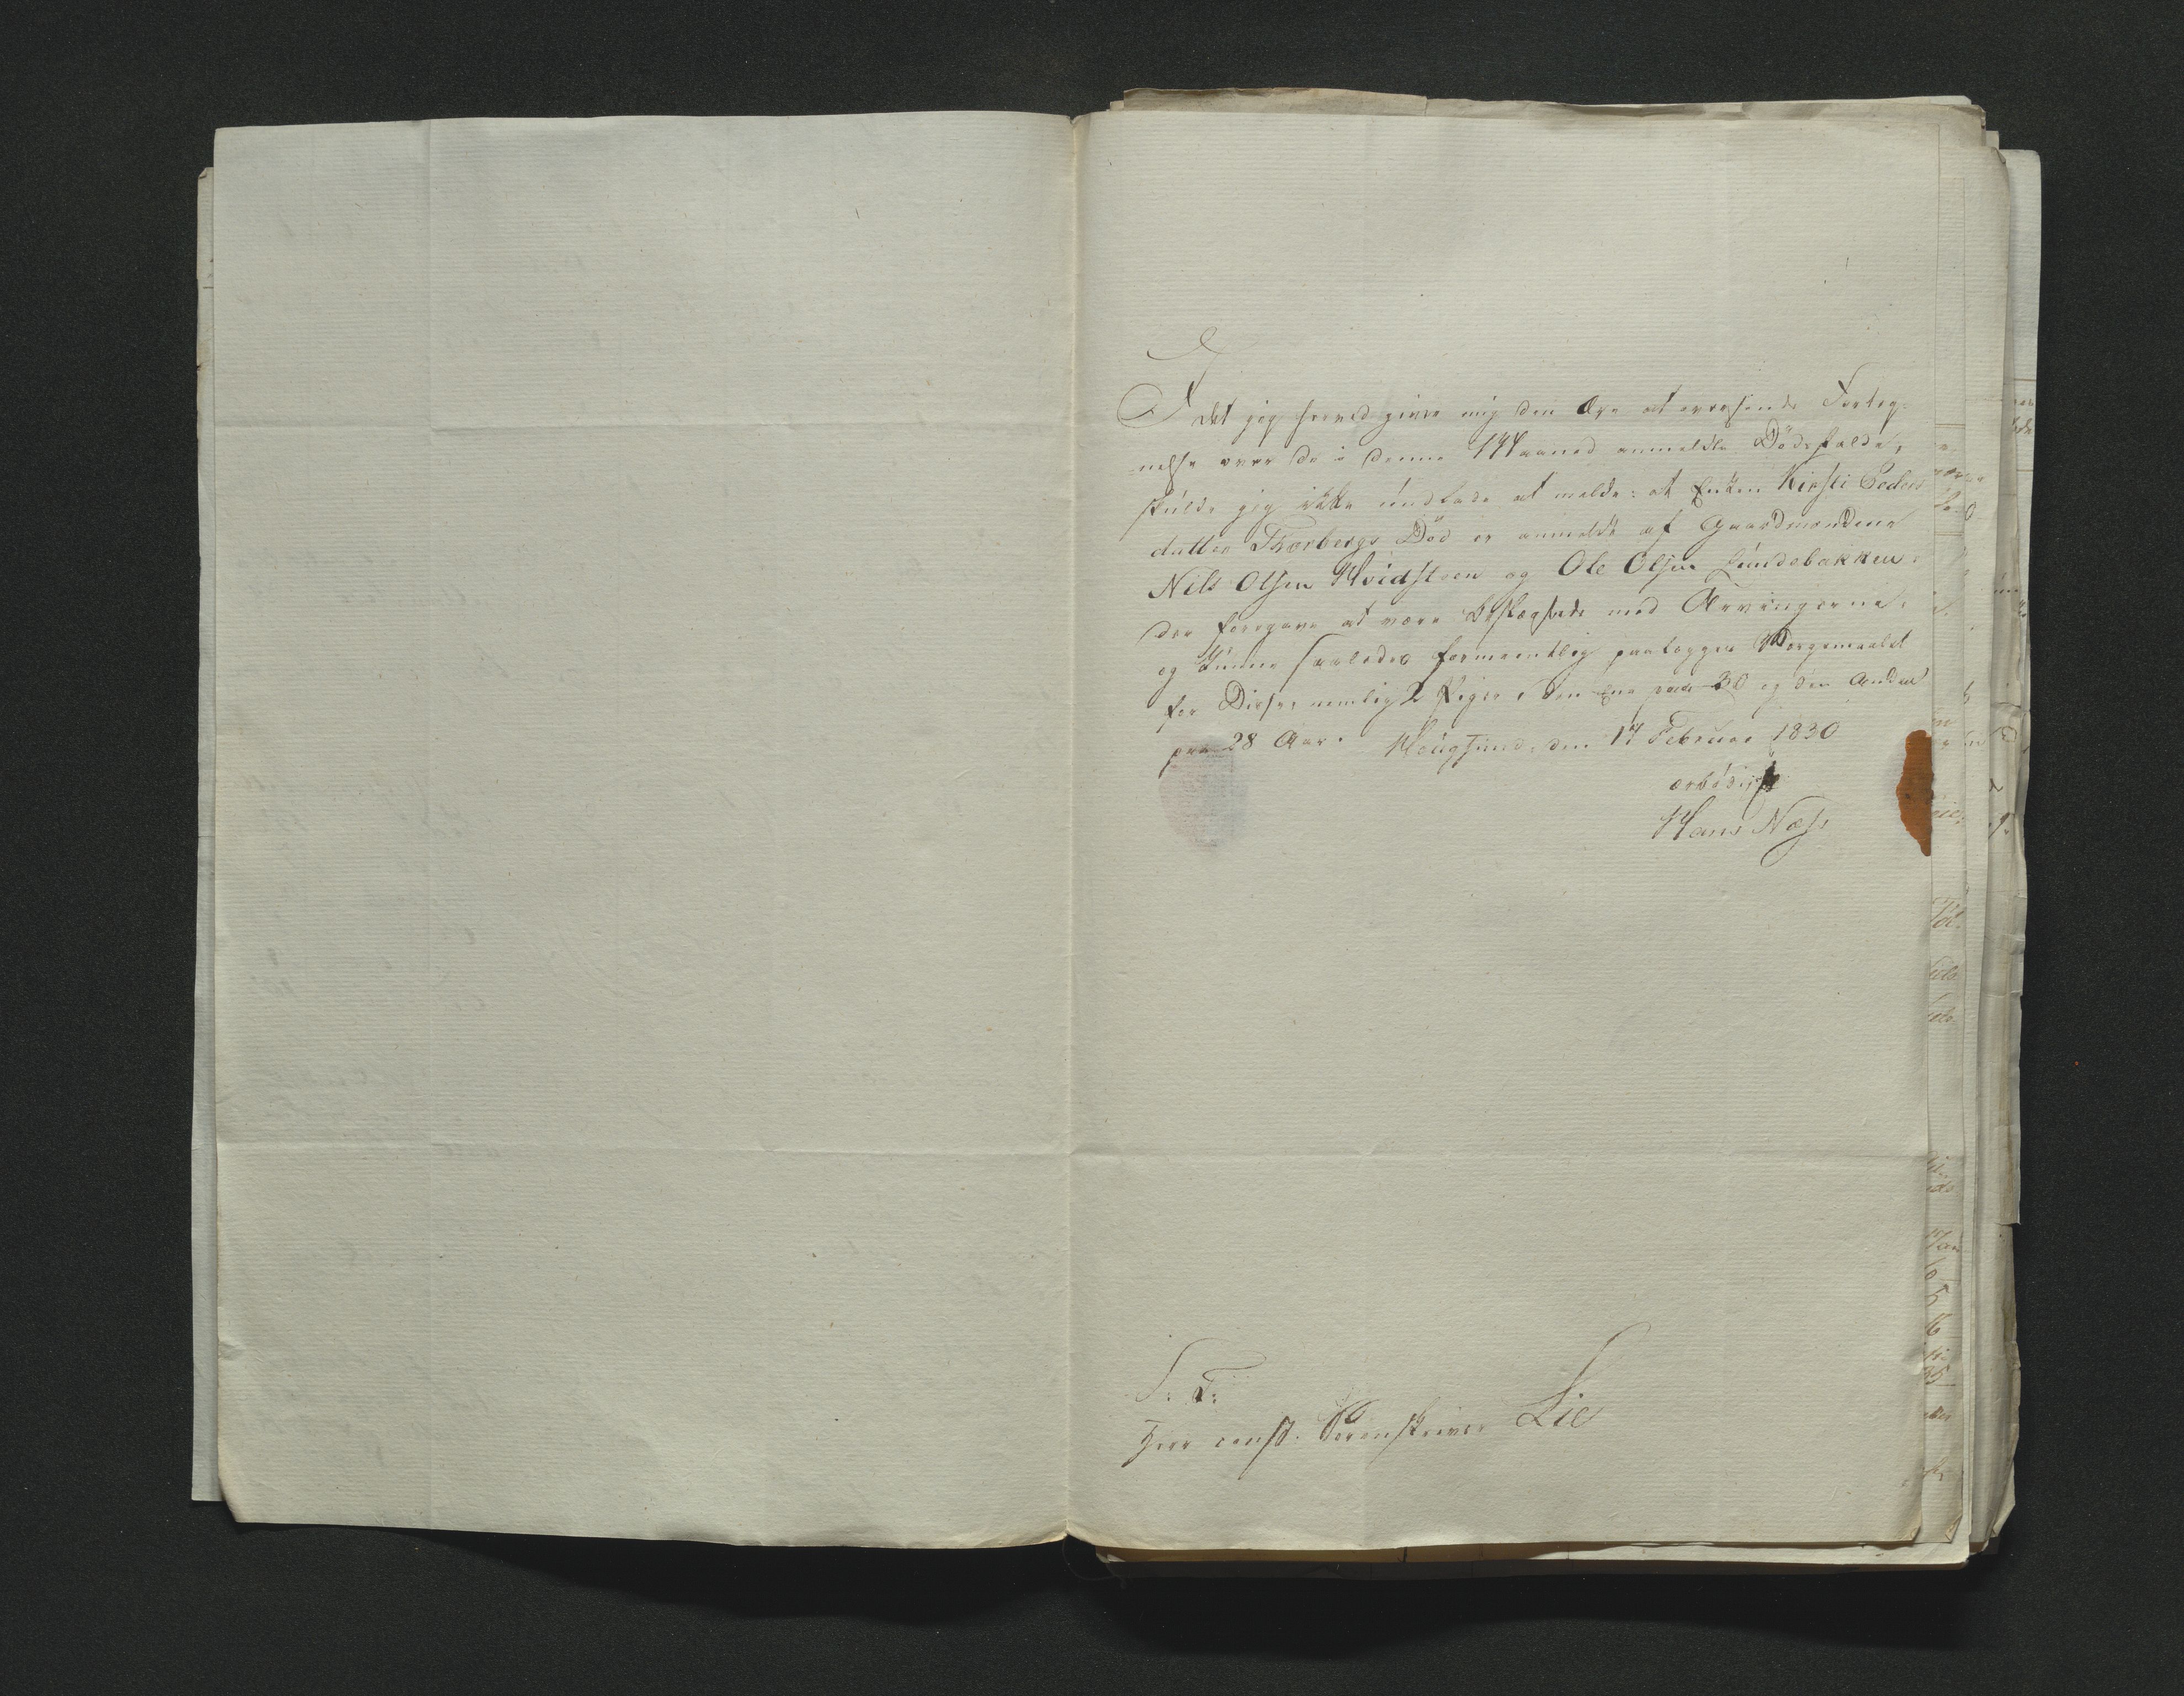 I det jeg herved giver mig den Ære at oversende Forteg-
-nelse over de i denne Maaned anmeldte Dödsfalde,
skulde jeg ikke undlade at melde: at Enken Kirsti Peders
datter Thorbergs Död er anmeldt af Gaardmændene
Nils Olsen Hvidsteen og Ole Olsen Lundebakken,
der foregave at være beslægtede med Arvingerne,
og kunne saaledes formeentlig paalægges Værgemaalet
for Disse, nemlig 2 Piger, den Ene paa 30 og den Anden
paa 28 Aar. Hougsund, den 17 Februar 1830
ærbödigst
Hans Næss
S. T.
Herr const. Sorenskriver Lie